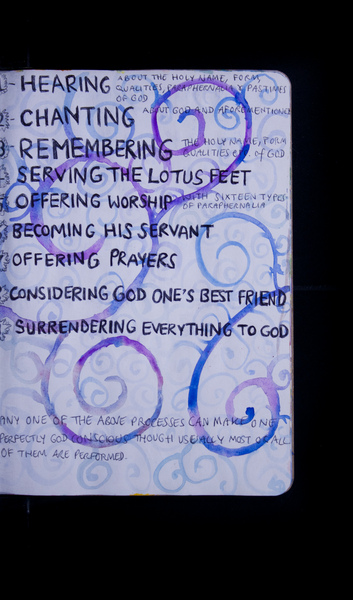 - HEARING ABOUT THE HOLY NAME, FORM
QUALITIES, PARAPHERNALIA & PASTIMES
OF GOD
- CHANTING ABOUT GOD AND AFOREMENTIONED
- REMEMBERING THE HOLY NAME, FORM
QUALITIES of GOD
SERVING THE LOTUS FEET
OFFERING WORSHIP WITH SIXTEEN TYPES
OF PARAPHERNALIA
BECOMING HIS SERVANT
OFFERING PRAYERS
CONSIDERING GOD ONE'S BEST FRIEND
SURRENDERING EVERYTHING TO GOD
ANY ONE OF THE ABOVE PROCESSES CAN MAKE ONE
PERFECTLY GOD CONSCIOUS THOUGH USUALLY MOST OR ALL
OF THEM ARE PERFORMED.